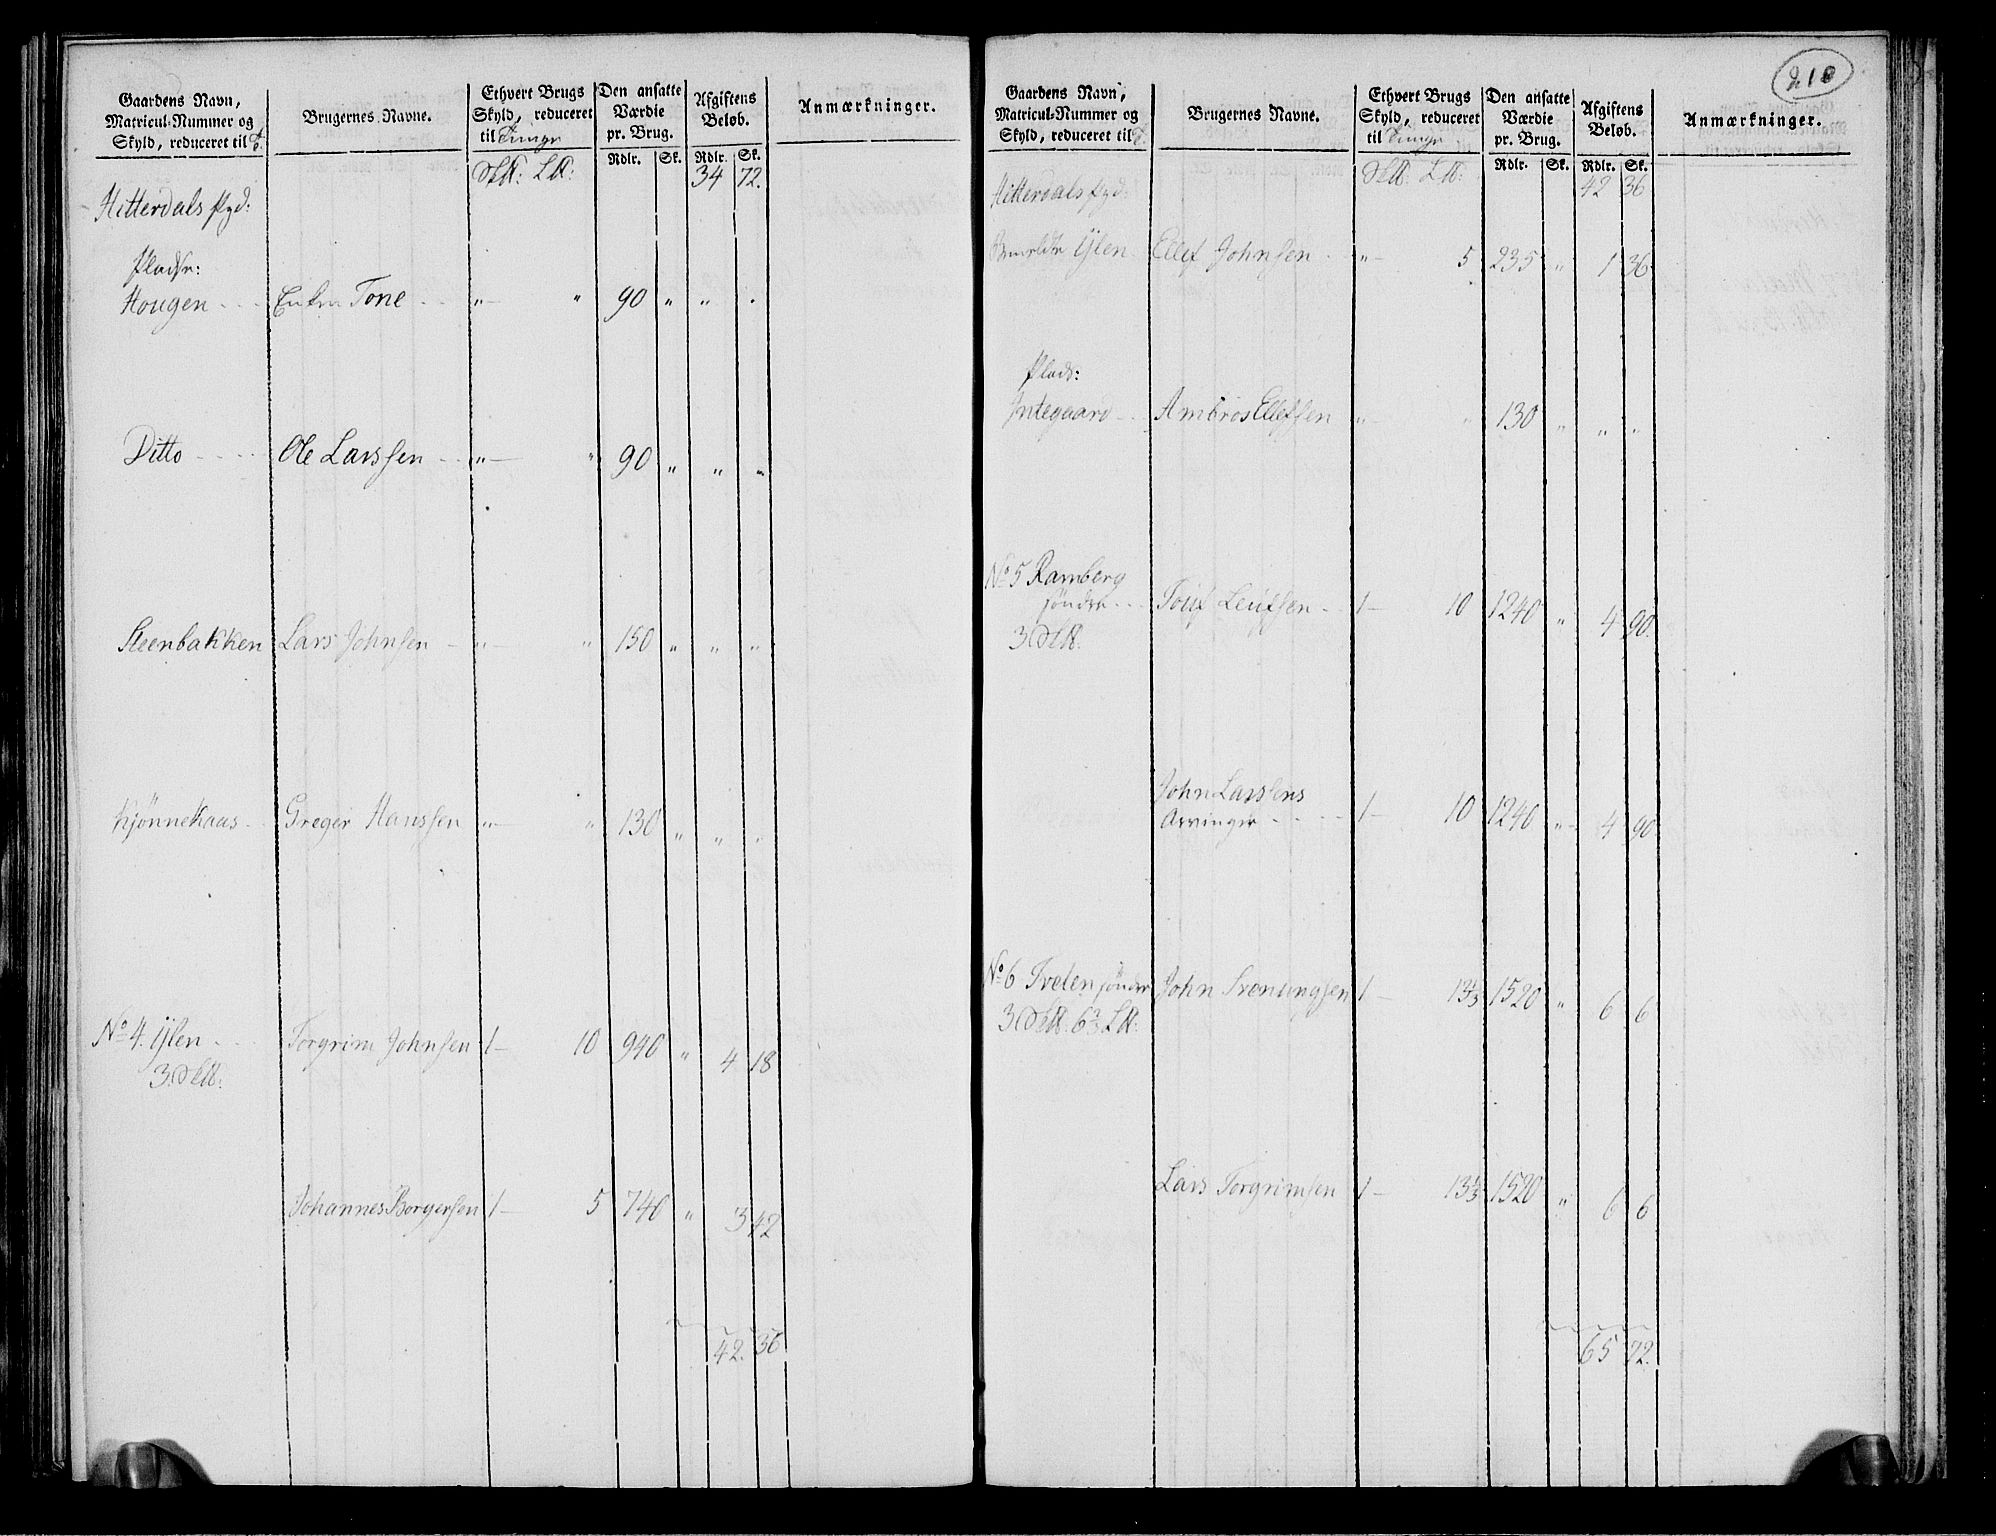 Gaardens Navn, Matricul-Nummer og Skyld, reduceret til
Brugernes Navne.
Ethvert Brugs Skyld, reduceret til Tunge
Den ansatte Værdie pr. Brug.
Afgiftens Beløb.
Anmærkninger.
Rdlr. Sk. Rdlr. Sk.
34 72.
Hitterdals
Pladse:
Hougen Enken Tone " " 90 " " "
Ditto Ole Larssen " " 90 " " "
Steenbakken Lars Johnsen " " 150 " " "
Kjønnekaas Greger Hanssen " " 130 " " "
No 4. Ijlen Torgrim Johnsen 1 10 940 " 4 18
3
Johannes Borgersen 1 5 740 " 3 42
42. 36
210
Gaardens Navn, Matricul-Nummer og Skyld, reduceret til
Brugernes Navne.
Ethvert Brugs Skyld, reduceret til Tunge
Den ansatte Værdie pr. Brug.
Afgiftens Beløb.
Anmærkninger.
Rdlr. Sk. Rdlr. Sk.
42 36
Hitterdals
Ijlen Ellef Johnsen " 5 235 " 1 36
Plads:
Ambros Ellefsen " " 130 " " "
No 5 Ramberg
søndre Leufsen 1 10 1240 " 4 90.
3
John Larssens
Arvinger 1 10 1240 " 4 90
No 6 Tveten søndre John Svenungsen 1 13 1/3 1520 " 6 6
3 6 2/3
Lars Torgrimsen 1 13 1/3 1520 " 6 6
65 72.